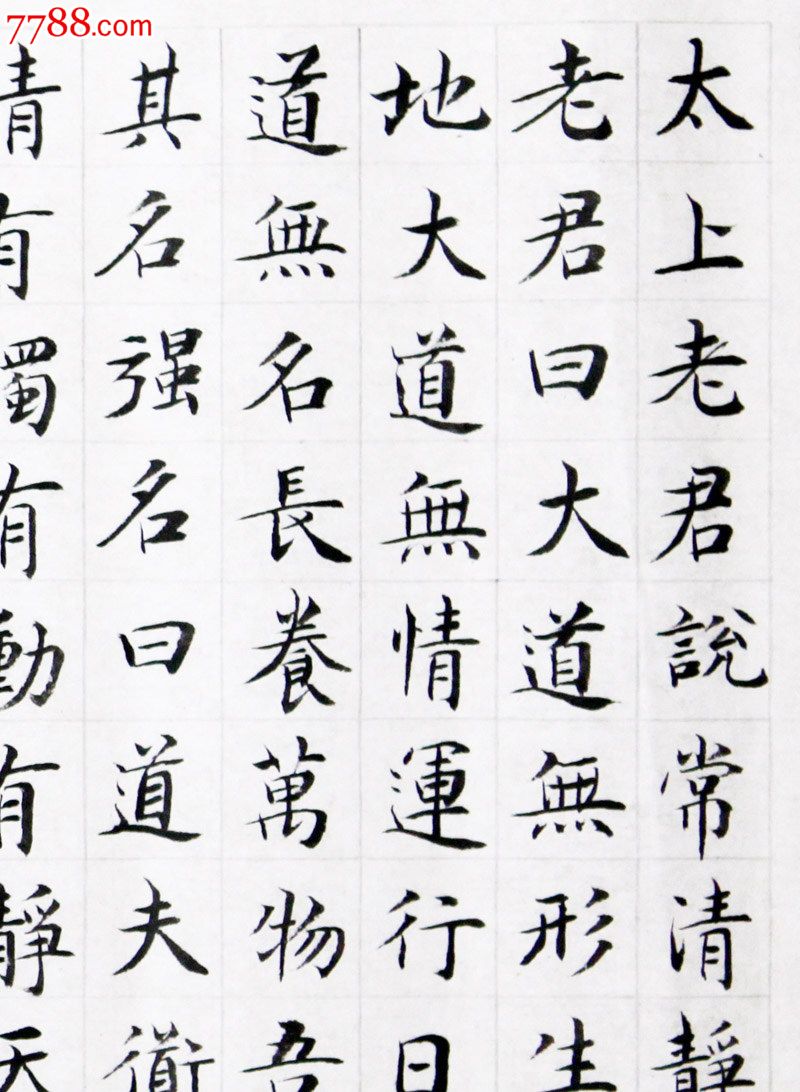 7788.com
太上老君說常清靜
老君曰大道無形生
地大道無情運行日
道無名長養萬物吾
其名强名曰道夫
清有濁有動有靜天